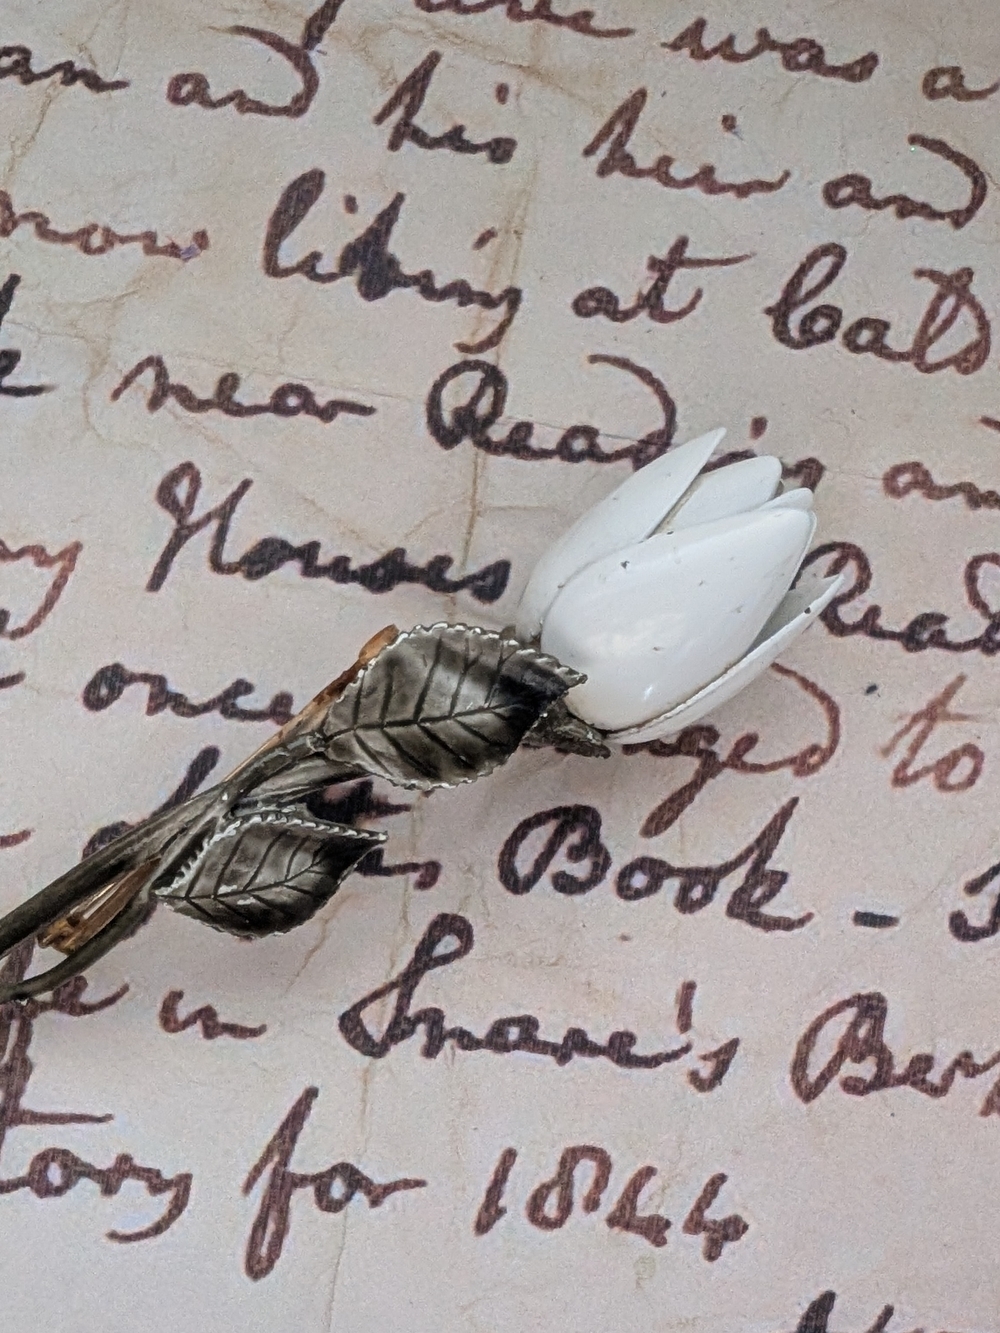 was a
an and his heir and
now living at Cats
near Reading an
Houses Read
once to
Book -
in Snare's Ber
tory for 1844